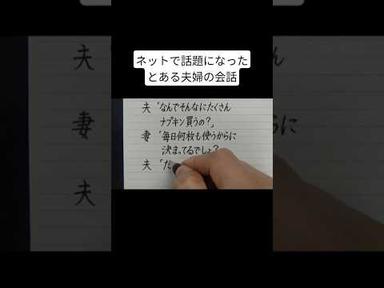 ネットで話題になった
とある夫婦の会話
夫「なんでそんなにたくさん
ナプキン買うの?」
妻「毎日何枚も使うからに
決まってるでしょ?
夫「だ